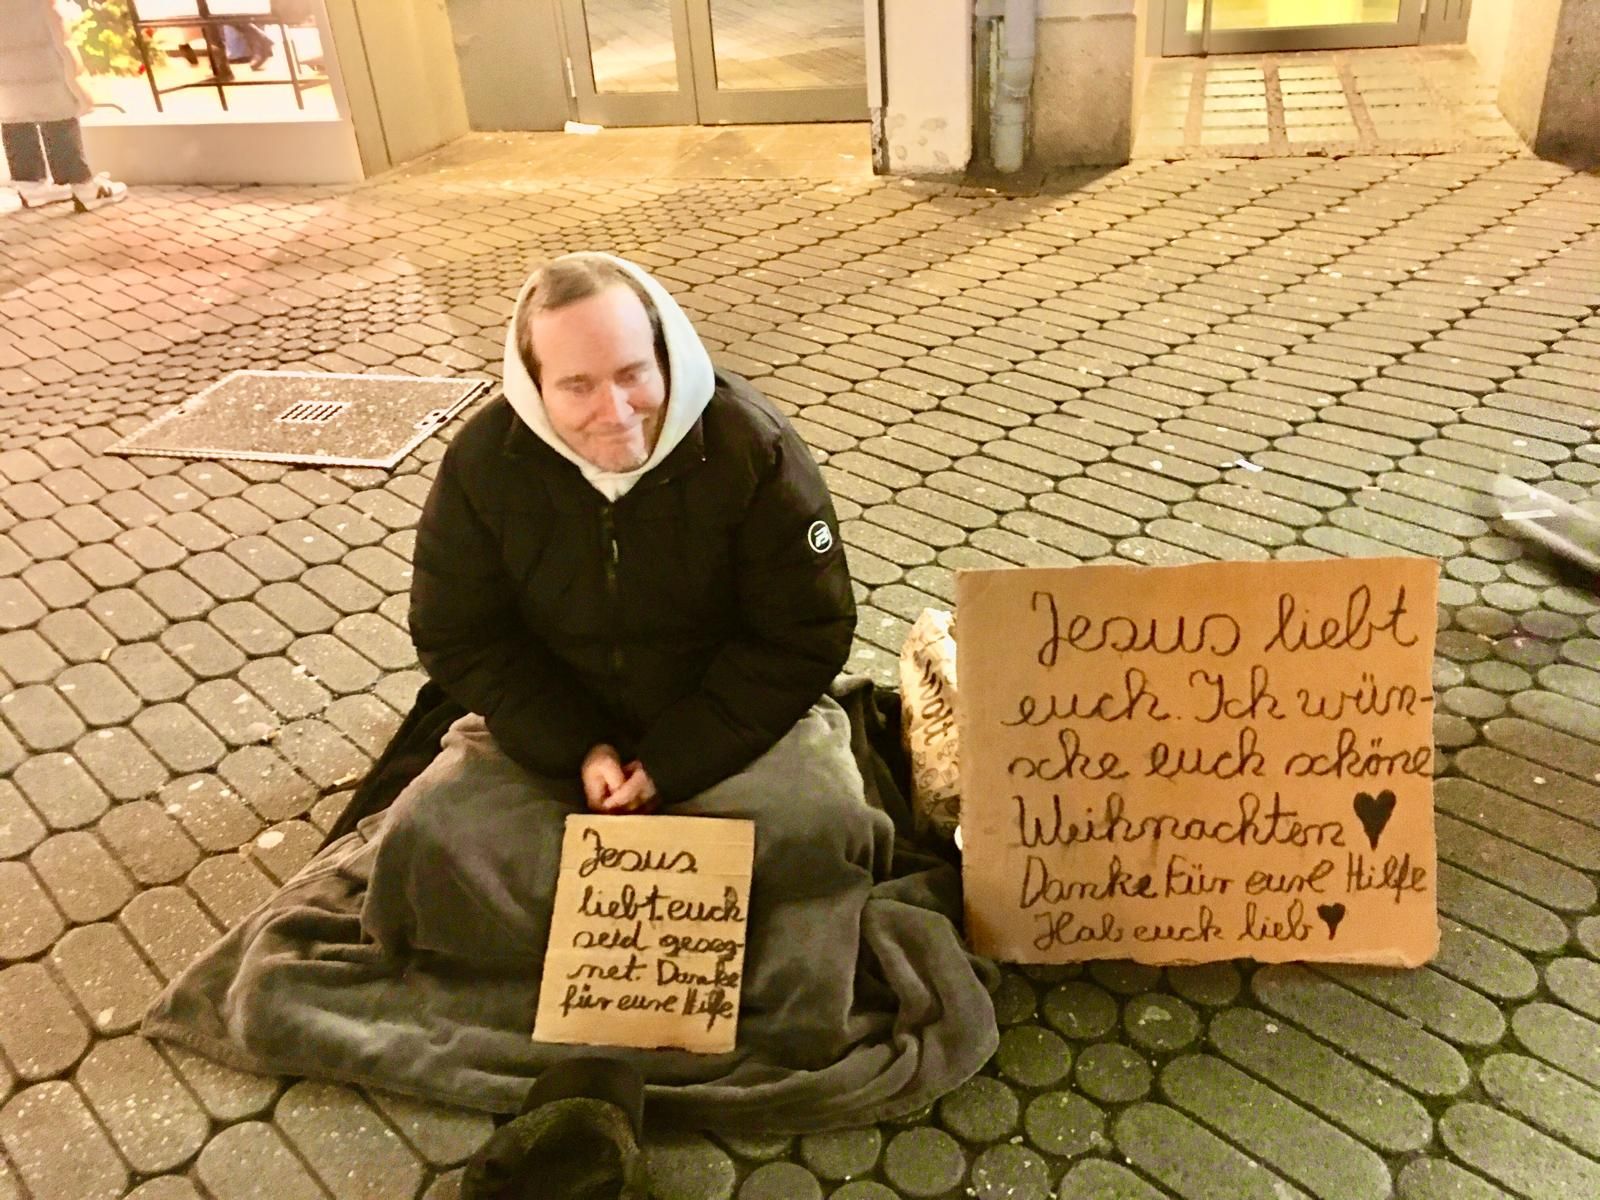 Jesus
liebt euch
seid geseg-
net. Danke
für eure Hilfe
Jesus liebt
euch. Ich wün-
sche euch schöne
Weihnachten
Danke Für eure Hilfe
Hab euch lieb